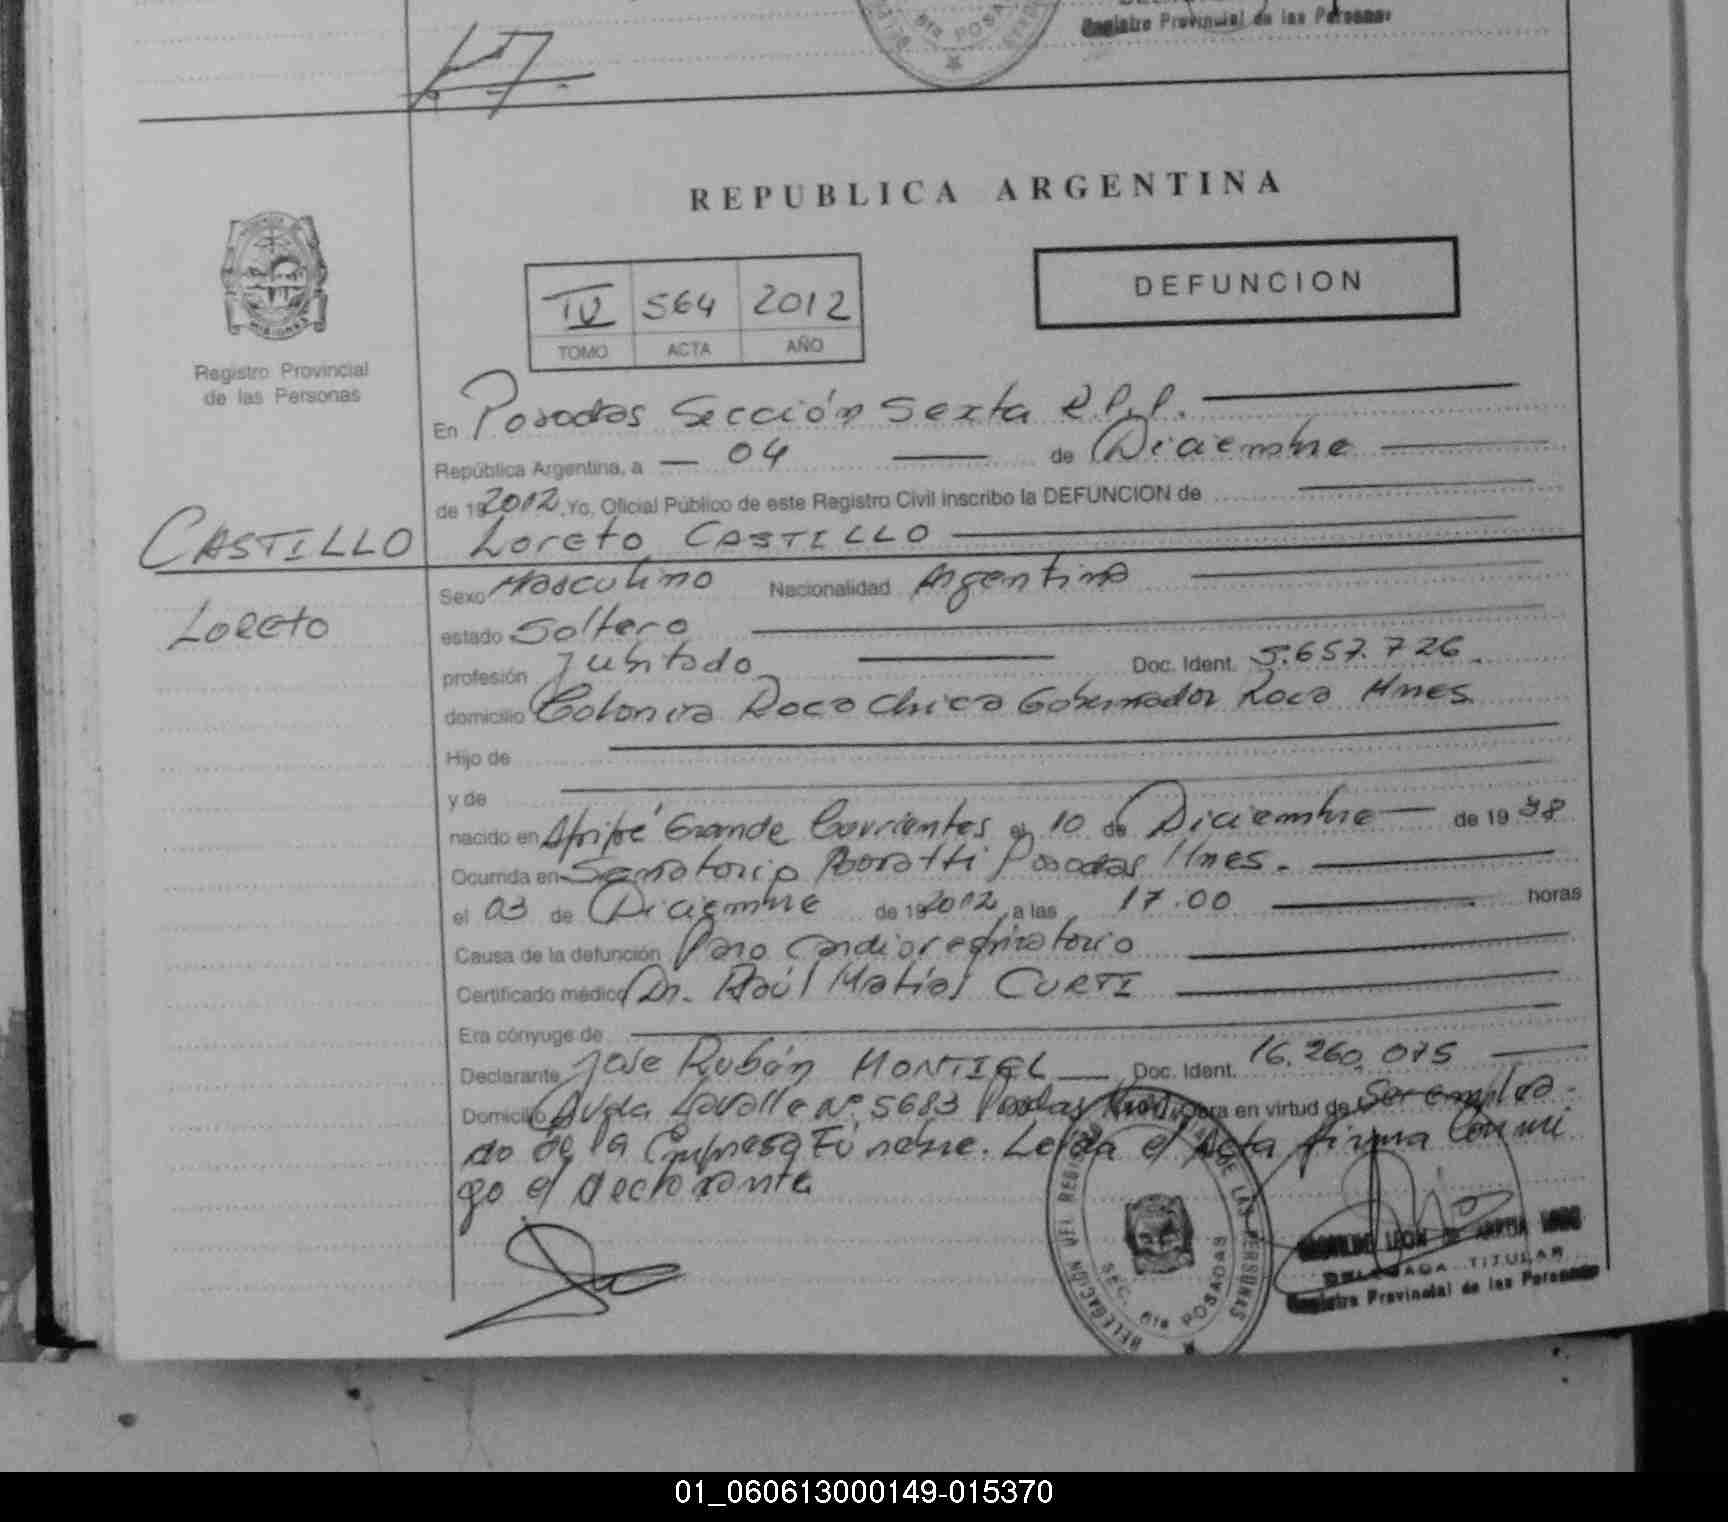 6ta POSA
Registro Provincial de las Personas
REPUBLICA ARGENTINA
MISIONES
Registro Provincial
de las Personas
IV 564 2012
TOMO ACTA AÑO
DEFUNCION
En Posadas Sección Sexta R.P.P.
República Argentina, a 04 de Diciembre
de 192012, Yo, Oficial Público de este Registro Civil inscribo la DEFUNCION de
CASTILLO
Loreto CASTILLO
Loreto
Sexo Masculino Nacionalidad Argentina
estado Soltero
profesión Jubilado Doc. Ident. 5.657.726
domicilio Colonia Roca Chica Gobernador Roca Mnes
Hijo de
y de
nacido en Apipé Grande Corrientes el 10 de Diciembre de 1938
Ocurrida en Sanatorio Boratti Posadas Mnes.
el 03 de Diciembre de 192012 a las 17.00 horas
Causa de la defunción Paro cardiorespiratorio
Certificado médico Dr. Raúl Matías CURTI
Era cónyuge de
Declarante Jose Rubén MONTIEL Doc. Ident. 16.260.075
Domicilio Avda Lavalle Nº 5683 Posadas Obra en virtud de Ser emplea-
do de la Empresa Fúnebre. Leída el Acta firma Conmi
go el declarante
DELEGACIÓN DEL REGISTRO DE LAS PERSONAS
SEC. 6ta POSADAS
LEON DE
DELEGADA TITULAR
Registro Provincial de las Personas
01_060613000149-015370